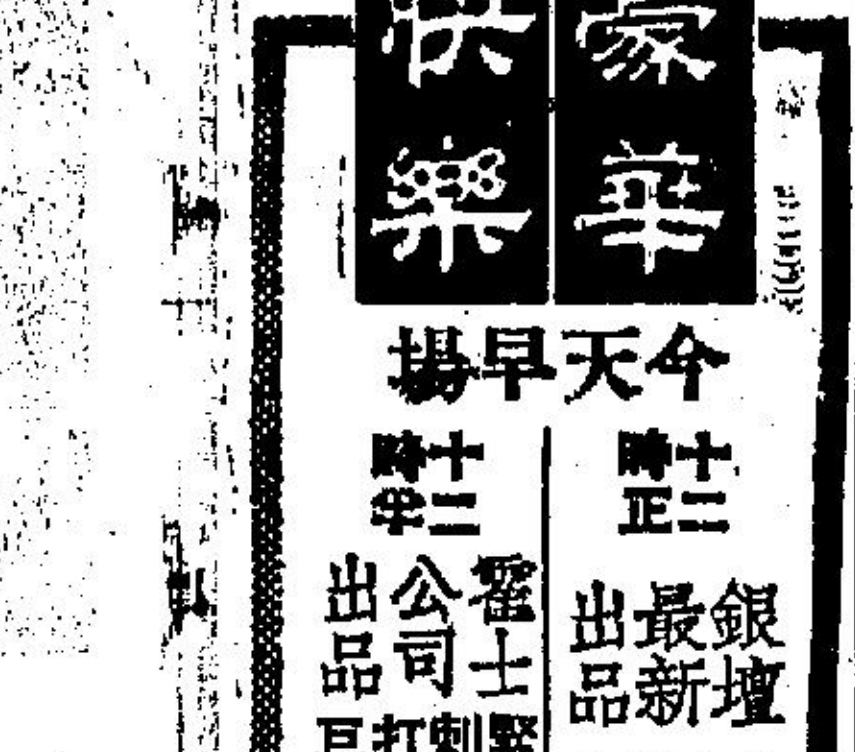 豪華
快樂
今天早場
十二時正
銀壇
最新
出品
十二時半
霍士
公司
出品